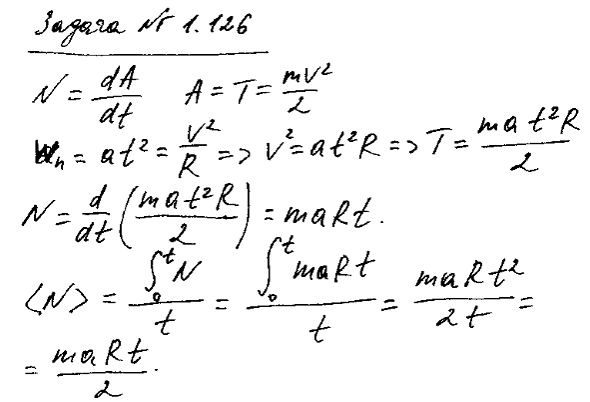 Задача № 1.126
N = dA/dt A = T = mv²/2
wₙ = at² = v²/R => v² = at²R => T = mat²R/2
N = d/dt (mat²R/2) = maRt.
⟨N⟩ = ∫₀ᵗ N / t = ∫₀ᵗ maRt / t = maRt²/2t =
= maRt/2.